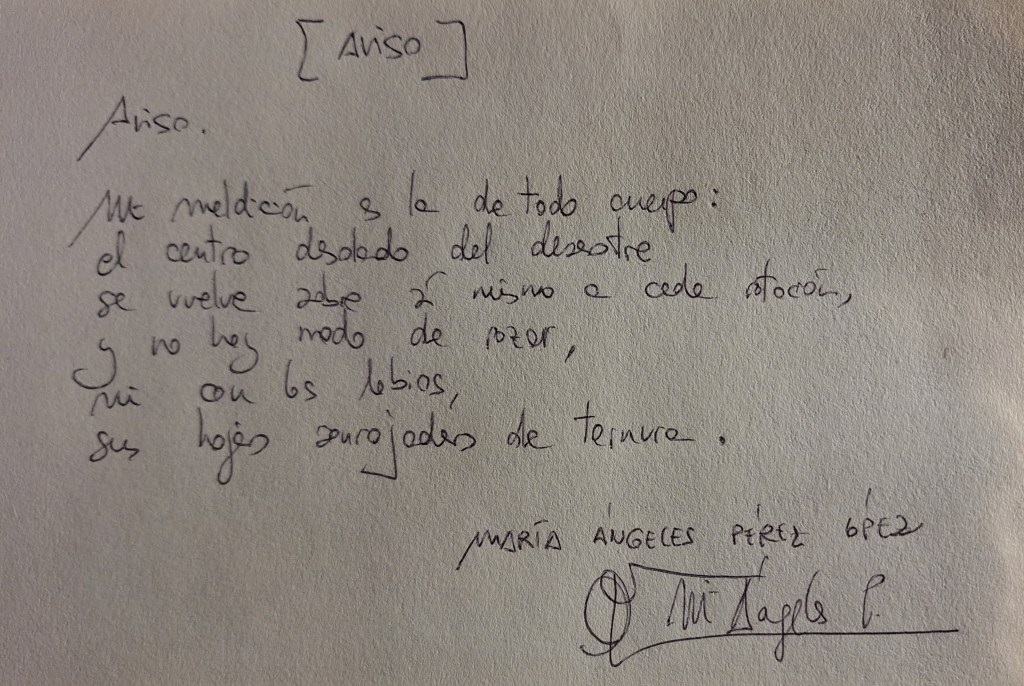 [Aviso]
Aviso.
Mi maldición es la de todo cuerpo:
el centro desolado del desastre
se vuelve sobre sí mismo a cada rotación,
y no hay modo de rozar,
ni con los labios,
sus hojas sonrojadas de ternura.
MARÍA ÁNGELES PÉREZ LÓPEZ
Mª Ángeles P.